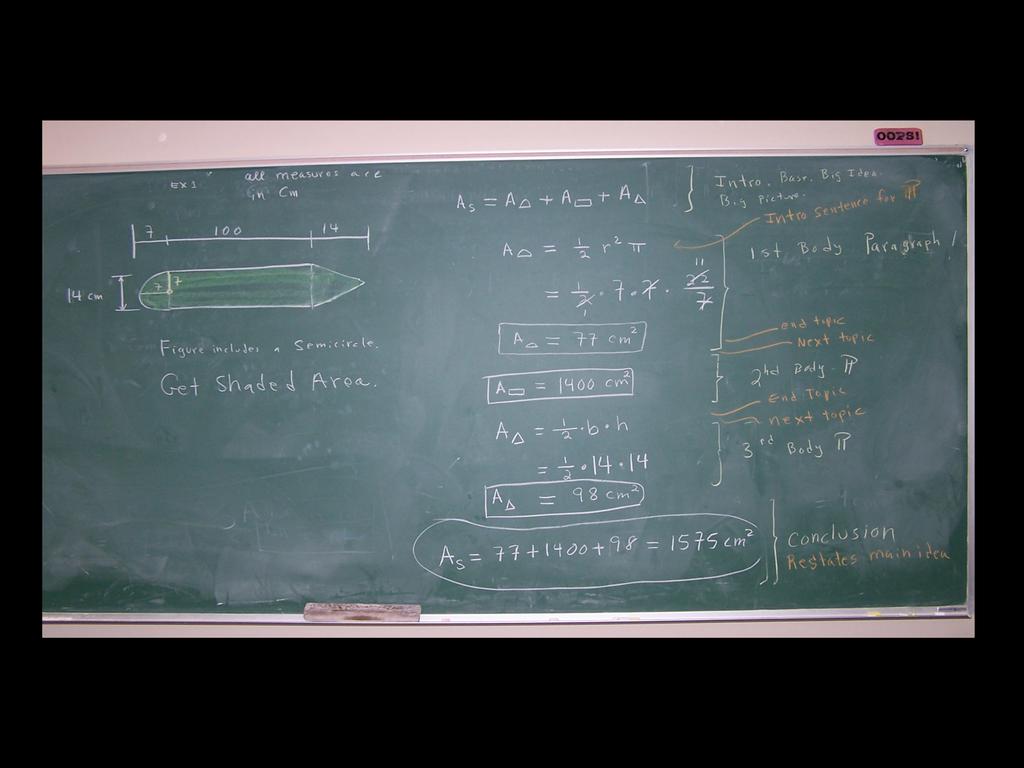 OOPS!
EX1
all measures are
in Cm
7 100 14
14 cm
7 7
Figure includes a Semicircle.
Get Shaded Area.
As = A⌓ + A▭ + A△
A⌓ = 1/2 r² π
= 1/2 · 7 · 7 · 22/7
11
1
A⌓ = 77 cm²
A▭ = 1400 cm²
A△ = 1/2 · b · h
= 1/2 · 14 · 14
A△ = 98 cm²
As = 77 + 1400 + 98 = 1575 cm²
Intro. Base. Big Idea.
Big Picture.
Intro sentence for ¶
1st Body Paragraph
end topic
Next topic
2nd Body ¶
End Topic
next topic
3rd Body ¶
Conclusion
Restates main idea